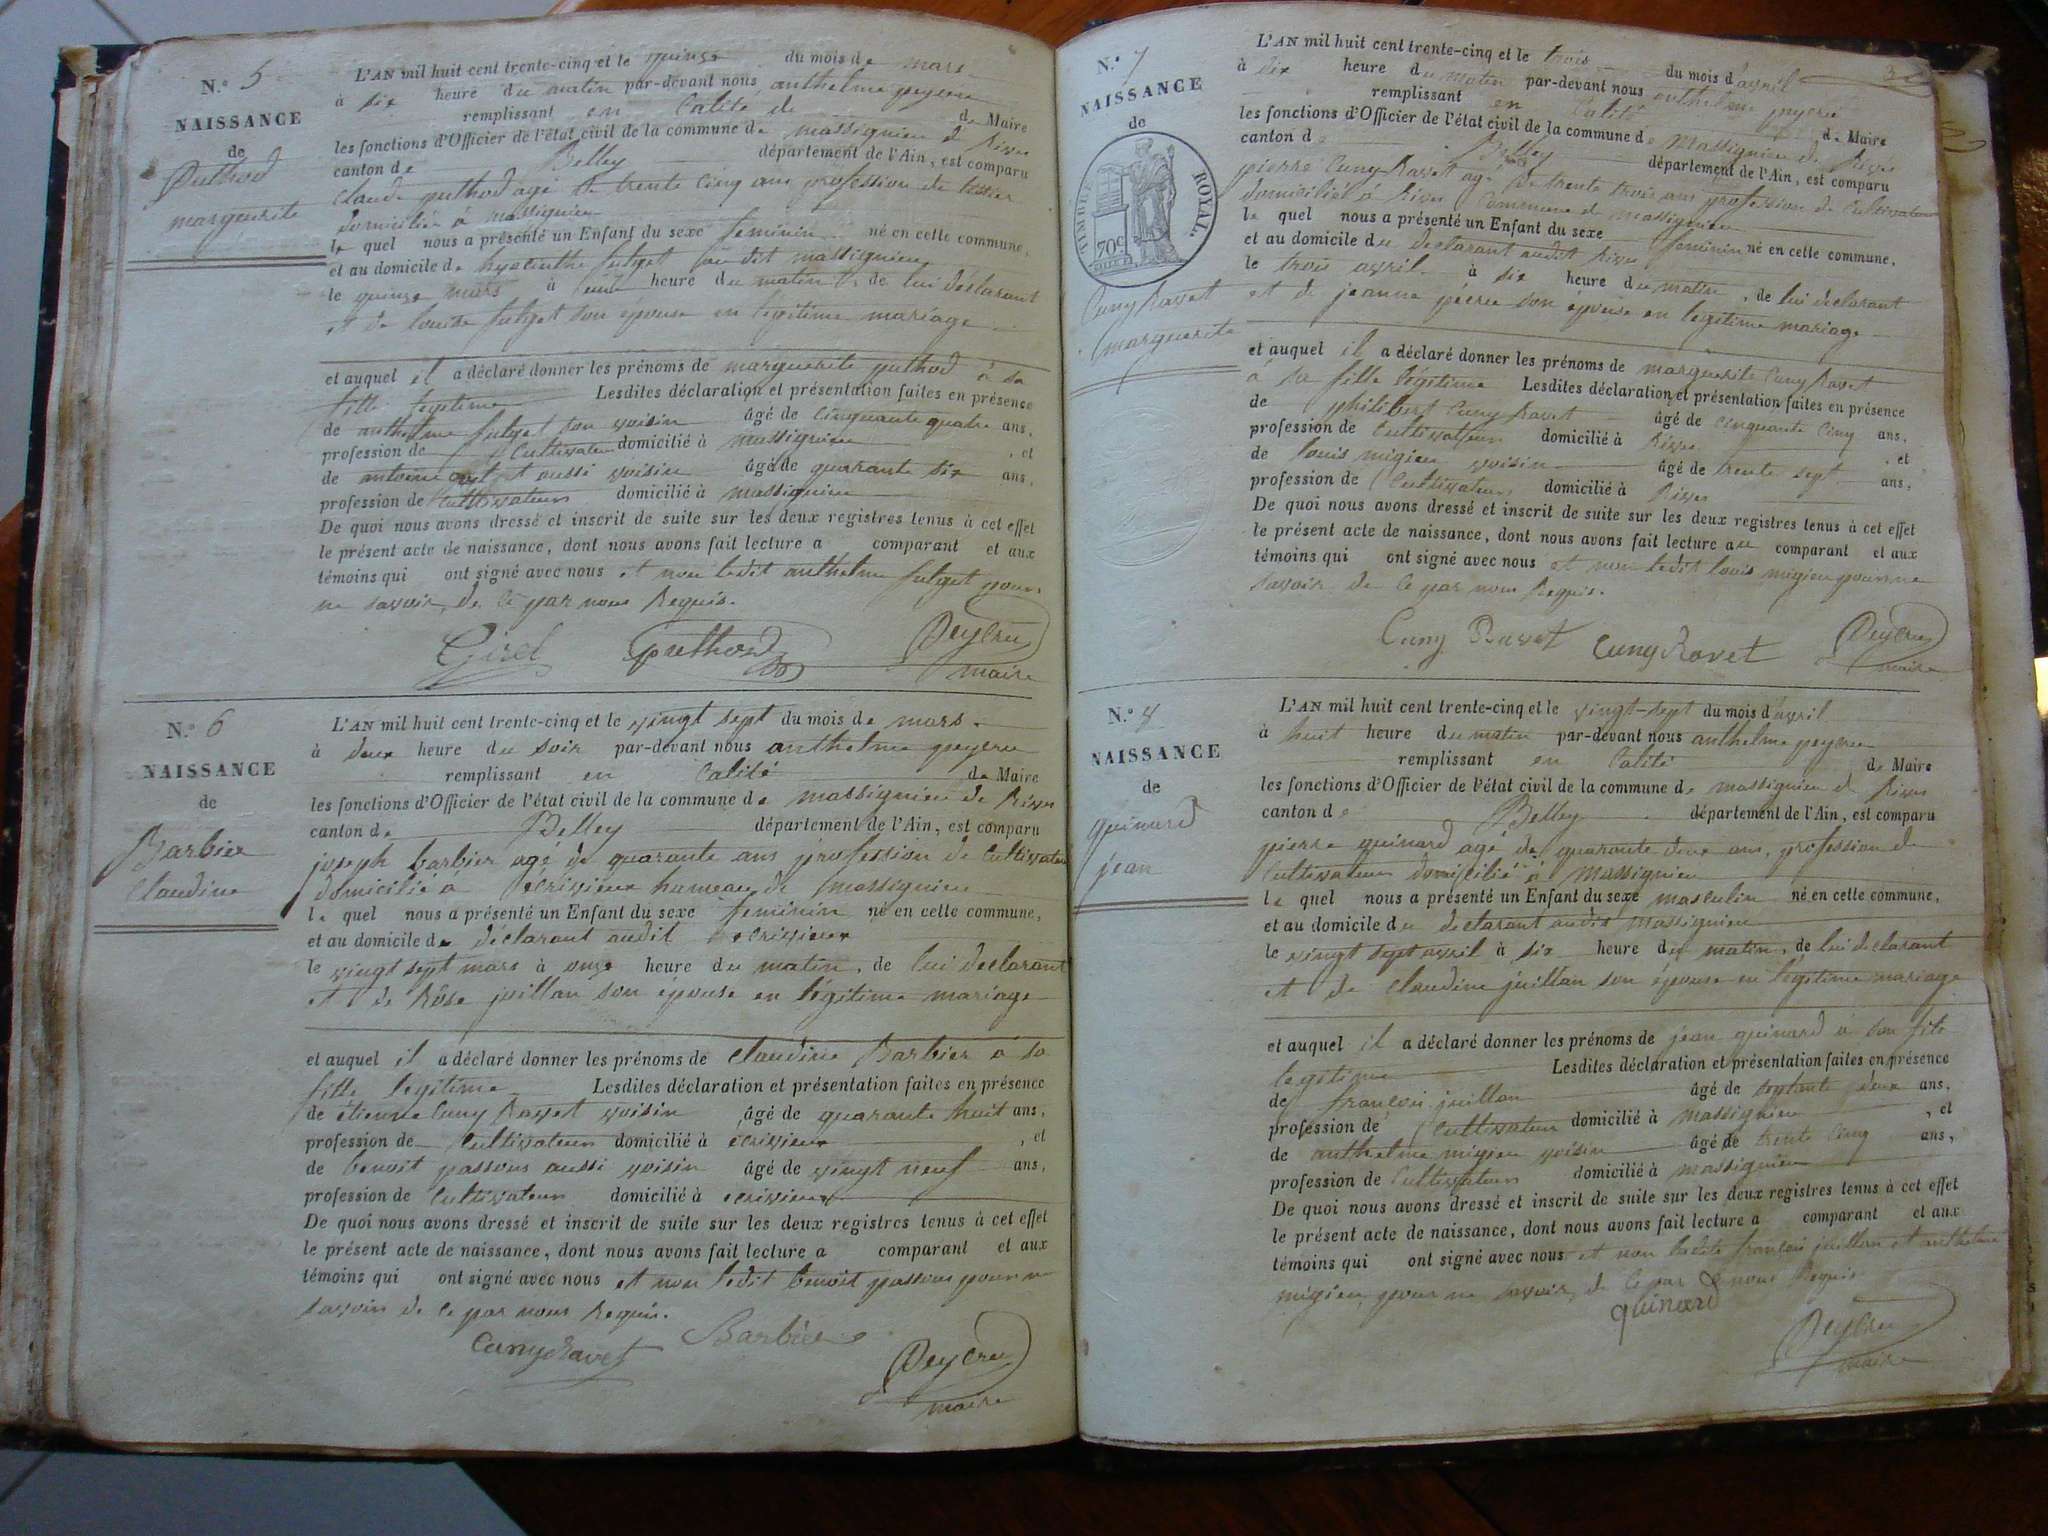 N.º 5
NAISSANCE
de
Puthod
marguerite
L'AN mil huit cent trente-cinq et le quinze du mois de mars
à six heure du matin par-devant nous anthelme peycru
remplissant en Calité de de Maire
les fonctions d'Officier de l'état civil de la commune de massignieu d Rives
canton de Belley département de l'Ain, est comparu
Claude puthod agé de trente Cinq ans profession de tissier
domicilié à massignieu
le quel nous a présenté un Enfant du sexe feminin né en cette commune,
et au domicile de hyacinthe fulget au dit massignieu
le quinze mars à une heure du matin, de lui déclarant
et de louise fulget son épouse en légitime mariage
et auquel il a déclaré donner les prénoms de marguerite puthod à sa
fille légitime Lesdites déclaration et présentation faites en présence
de anthelme fulget son voisin âgé de cinquante quatre ans,
profession de Cultivateur domicilié à massignieu, et
de antoine aussi voisin âgé de quarante six ans,
profession de Cultivateur domicilié à massignieu
De quoi nous avons dressé et inscrit de suite sur les deux registres tenus à cet effet
le présent acte de naissance, dont nous avons fait lecture a comparant et aux
témoins qui ont signé avec nous et non ledit anthelme fulget pour
ne savoir de ce par nous Requis.
puthod Peycru
maire
N.º 6
NAISSANCE
de
Barbier
Claudine
L'AN mil huit cent trente-cinq et le vingt sept du mois de mars
à deux heure du soir par-devant nous anthelme peycru
remplissant en Calité de Maire
les fonctions d'Officier de l'état civil de la commune de massignieu de Rives
canton de Belley département de l'Ain, est comparu
joseph barbier agé de quarante ans profession de Cultivateur
domicilié à écrivieux hameau de massignieu
le quel nous a présenté un Enfant du sexe feminin né en cette commune,
et au domicile de déclarant audit ecrivieux
le vingt sept mars à onze heure du matin, de lui declarant
et de Rôse juillan son épouse en légitime mariage
et auquel il a déclaré donner les prénoms de Claudine Barbier à sa
fille legitime Lesdites déclaration et présentation faites en présence
de étienne Cuny Ravet voisin âgé de quarante huit ans,
profession de Cultivateur domicilié à écrivieux, et
de benoit passous aussi voisin âgé de vingt neuf ans,
profession de Cultivateur domicilié à écrivieux
De quoi nous avons dressé et inscrit de suite sur les deux registres tenus à cet effet
le présent acte de naissance, dont nous avons fait lecture a comparant et aux
témoins qui ont signé avec nous et non ledit benoit passous pour ne
savoir de ce par nous Requis.
Cuny Ravet Barbier Peycru
maire
N.º 7
NAISSANCE
de
TIMBRE ROYAL.
70c
Cuny Ravet
marguerite
L'AN mil huit cent trente-cinq et le trois du mois d'avril
à dix heure du matin par-devant nous anthelme peycru
remplissant en Calité de Maire
les fonctions d'Officier de l'état civil de la commune de Massignieu de Rives
canton de Belley département de l'Ain, est comparu
pierre Cuny Ravet agé de trente trois ans profession de Cultivateur
domicilié à Rives Commune de massignieu
le quel nous a présenté un Enfant du sexe feminin né en cette commune,
et au domicile du declarant audit Rives
le trois avril à six heure du matin, de lui declarant
et de jeanne pecru son épouse en légitime mariage
et auquel il a déclaré donner les prénoms de marguerite Cuny Ravet
à sa fille légitime Lesdites déclaration et présentation faites en présence
de philibert Cuny Ravet âgé de cinquante Cinq ans,
profession de Cultivateur domicilié à Rives, et
de louis migieu voisin âgé de trente sept ans,
profession de Cultivateur domicilié à Rives
De quoi nous avons dressé et inscrit de suite sur les deux registres tenus à cet effet
le présent acte de naissance, dont nous avons fait lecture au comparant et aux
témoins qui ont signé avec nous et non ledit louis migieu pour ne
savoir de ce par nous Requis.
Cuny Ravet Cuny Ravet Peycru
maire
N.º 8
NAISSANCE
de
quinard
jean
L'AN mil huit cent trente-cinq et le vingt-sept du mois d'avril
à huit heure du matin par-devant nous anthelme peycru
remplissant en Calité de Maire
les fonctions d'Officier de l'état civil de la commune de massignieu d Rives
canton de Belley département de l'Ain, est comparu
pierre quinard agé de quarante deux ans, profession de
Cultivateur domicilié à Massignieu
le quel nous a présenté un Enfant du sexe masculin né en cette commune,
et au domicile du declarant audit Massignieu
le vingt sept avril à six heure du matin, de lui declarant
et de Claudine juillan son épouse en légitime mariage
et auquel il a déclaré donner les prénoms de jean quinard à son fils
legitime Lesdites déclaration et présentation faites en présence
de françois juillan âgé de septante deux ans,
profession de Cultivateur domicilié à massignieu, et
de anthelme migieu voisin âgé de trente Cinq ans,
profession de Cultivateur domicilié à massignieu
De quoi nous avons dressé et inscrit de suite sur les deux registres tenus à cet effet
le présent acte de naissance, dont nous avons fait lecture a comparant et aux
témoins qui ont signé avec nous et non ledits françois juillan et anthelme
migieu pour ne savoir de ce par nous Requis
quinard Peycru
maire